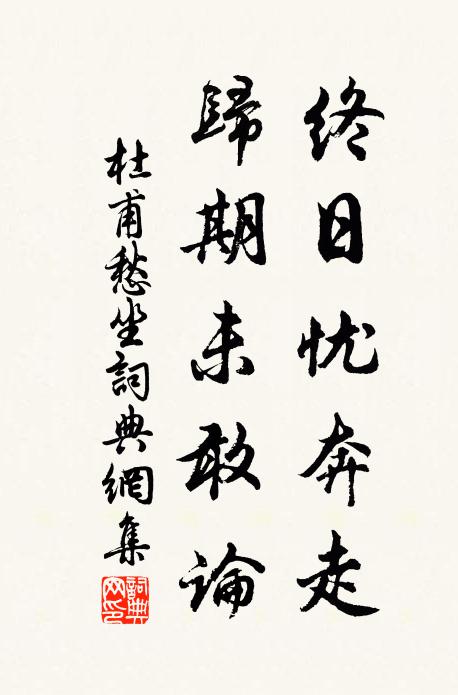 终日忧奔走
歸期未敢論
杜甫愁坐詞典網集
詞典
网印